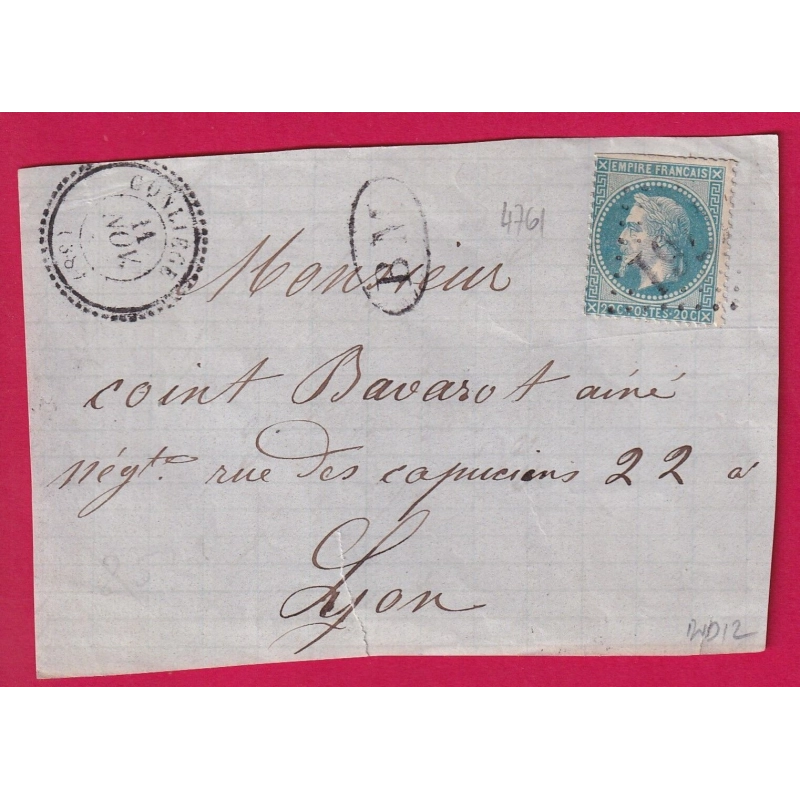 CONLIEGE
11
NOV.
(38)
BM
4761
EMPIRE FRANCAIS
20 C-POSTES-20 C
Monsieur
coint Bavarot ainé
négt. rue des capucins 22 à
Lyon